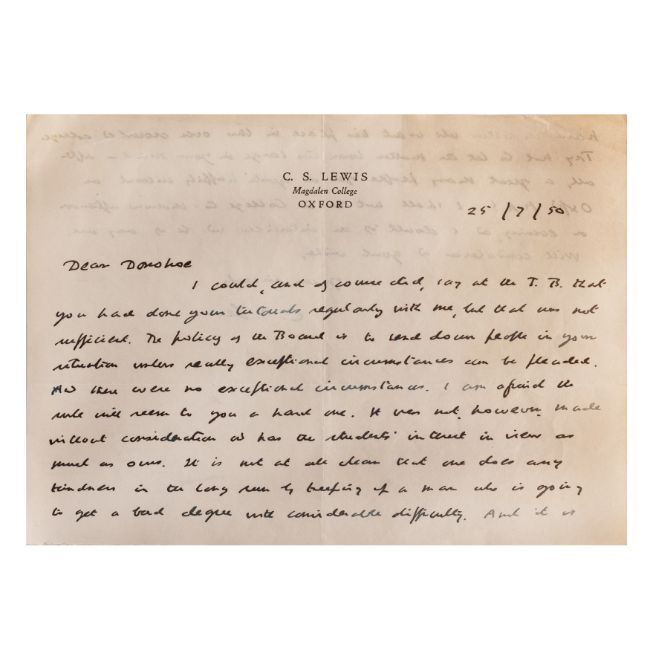 C. S. LEWIS
Magdalen College
OXFORD
25/7/50
Dear Donohoe
I could, and of course did, say at the T. B. that
you had done your tutorials regularly with me, but that was not
sufficient. The policy of the Board is to send down people in your
situation unless really exceptional circumstances can be pleaded.
And there were no exceptional circumstances. I am afraid the
rule will seem to you a hard one. It was not, however, made
without consideration and has the students' interest in view as
much as ours. It is not at all clear that one does any
kindness in the long run by keeping up a man who is going
to get a bad degree with considerable difficulty. And it is